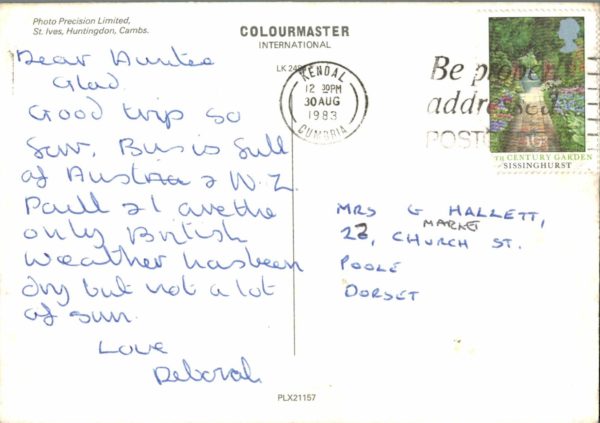 Photo Precision Limited,
St. Ives, Huntingdon, Cambs.
COLOURMASTER
INTERNATIONAL
KENDAL
12 30PM
30 AUG
1983
CUMBRIA
Be properly
addressed
POST
TH CENTURY GARDEN
SISSINGHURST
Dear Auntee
Glad.
Good trip so
Farr. Bus is full
of Austria & N.Z.
Paul & I are the
only British
Weather has been
dry but not a lot
of sun.
Love
Deborah
MRS G HALLETT,
MARKET
23, CHURCH ST.
POOLE
DORSET
PLX21157